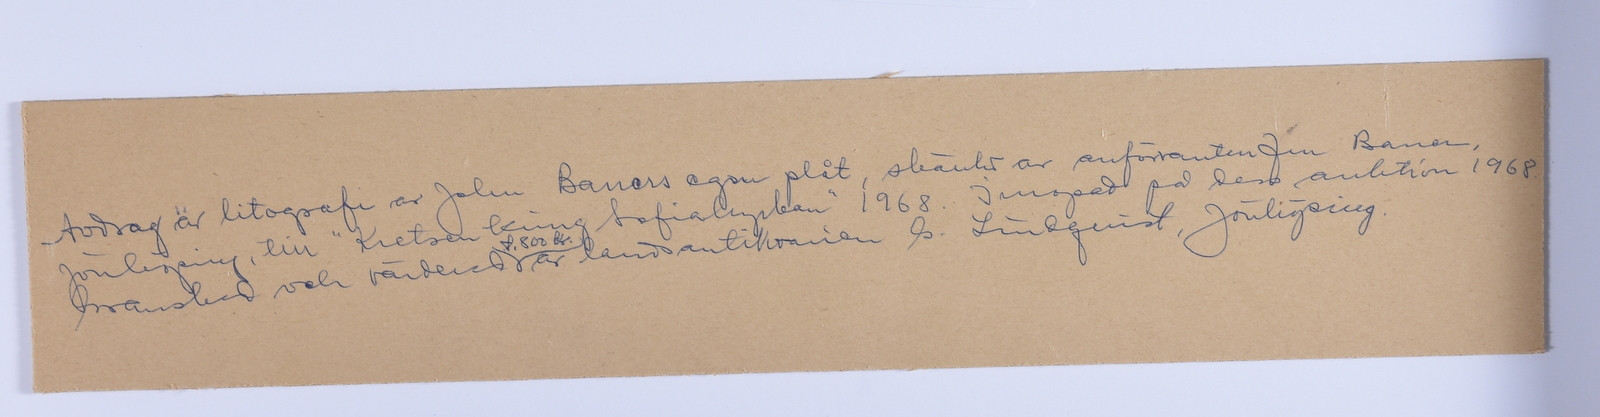 Avdrag är litografi av John Bauers egen plåt, skänkt av anförvanten Bauer,
Jönköping, till "Kretsen kring Sofiakyrkan" 1968. Inropad på dess auktion 1968.
Granskad och värderad f. 800 kr. av landsantikvarien G. Lindquist, Jönköping.